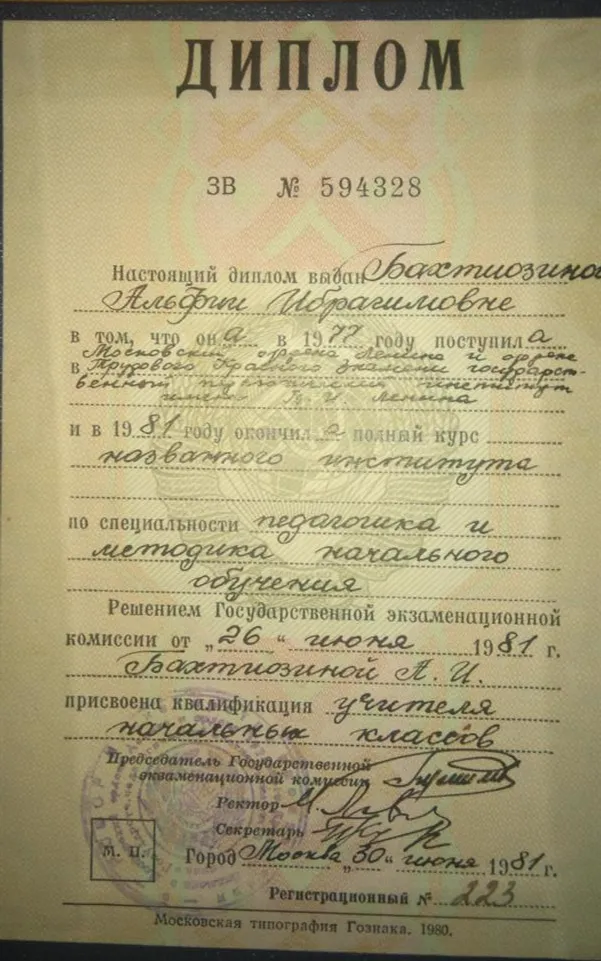 ДИПЛОМ
ЗВ № 594328
Настоящий диплом выдан Бахтиозиной
Альфии Ибрагимовне
в том, что она в 1977 году поступила
Московский ордена Ленина и ордена
в Трудового Красного Знамени государст-
венный педагогический институт
имени В. И. Ленина
и в 1981 году окончила полный курс
названного института
по специальности педагогика и
методика начального
обучения
Решением Государственной экзаменационной
комиссии от „26“ июня 1981 г.
Бахтиозиной А. И.
присвоена квалификация учителя
начальных классов
Председатель Государственной
экзаменационной комиссии
Ректор
Секретарь
М. П.
Город Москва „30“ июня 1981 г.
Регистрационный № 223
Московская типография Гознака. 1980.